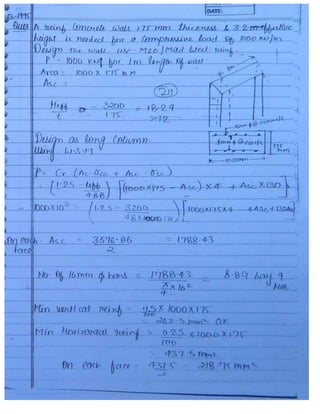 DATE:
Ques A reinf concrete wall 175 mm thickness & 3.2 m effective
height is needed for a compressive load of 1000 KN/m.
Design the wall. use M20 / Mild steel reinf
P = 1000 KN for 1m length of wall
Area = 1000 X 175 mm
Asc =
Heff/t = 3200/175 = 18.29 >12
Design as long column
Using L.S.M
P = Cr (Ac σcc + Asc - σsc)
(1.25 - leff/48B) [(1000X175 - Asc) X4 + Asc X130]
1000X10³ = (1.25 - 3200/48X1000) [1000X175X4 - 4Asc +130Asc]
On each face Asc = 3576.86/2 = 1788.43
No. Of 16mm φ bars = 1788.43/(π/4 X 16²) = 8.89 Say 9 Nos.
Min vertical reinf = .15/100 X1000X175
= 262.5 mm² OK
Min Horizontal reinf = 0.25/100 X 1000X175
= 437.5 mm²
On each face = 437.5/2 = 218.75 mm²